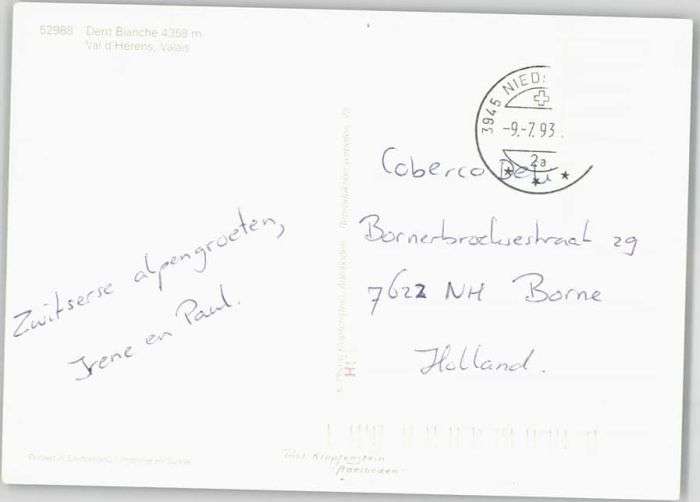 52988 Dent Blanche 4358 m
Val d'Hérens, Valais
3945 NIED
-9.-7.93
2a
Coberco
Bornerbroeksestraat 29
7622 NH Borne
Holland.
Zwitserse alpengroeten,
Irene en Paul.
Klopfenstein
Adelboden